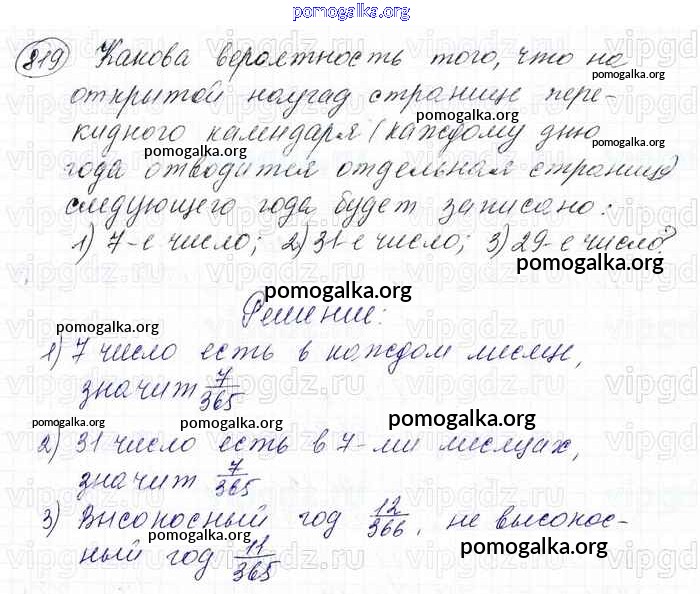 pomogalka.org
819 Какова вероятность того, что на
pomogalka.org
открытой наугад странице пере-
pomogalka.org
кидного календаря (каждому дню
pomogalka.org pomogalka.org
года отводится отдельная страница)
следующего года будет записано:
pomogalka.org
1) 7-е число; 2) 31-е число; 3) 29-е число?
pomogalka.org
pomogalka.org
Решение:
pomogalka.org
1) 7 число есть в каждом месяце,
значит 7/365
pomogalka.org pomogalka.org
2) 31 число есть в 7-ми месяцах,
значит 7/365
pomogalka.org
3) Высокосный год 12/366, не высокос-
pomogalka.org pomogalka.org
ный год 11/365
pomogalka.org